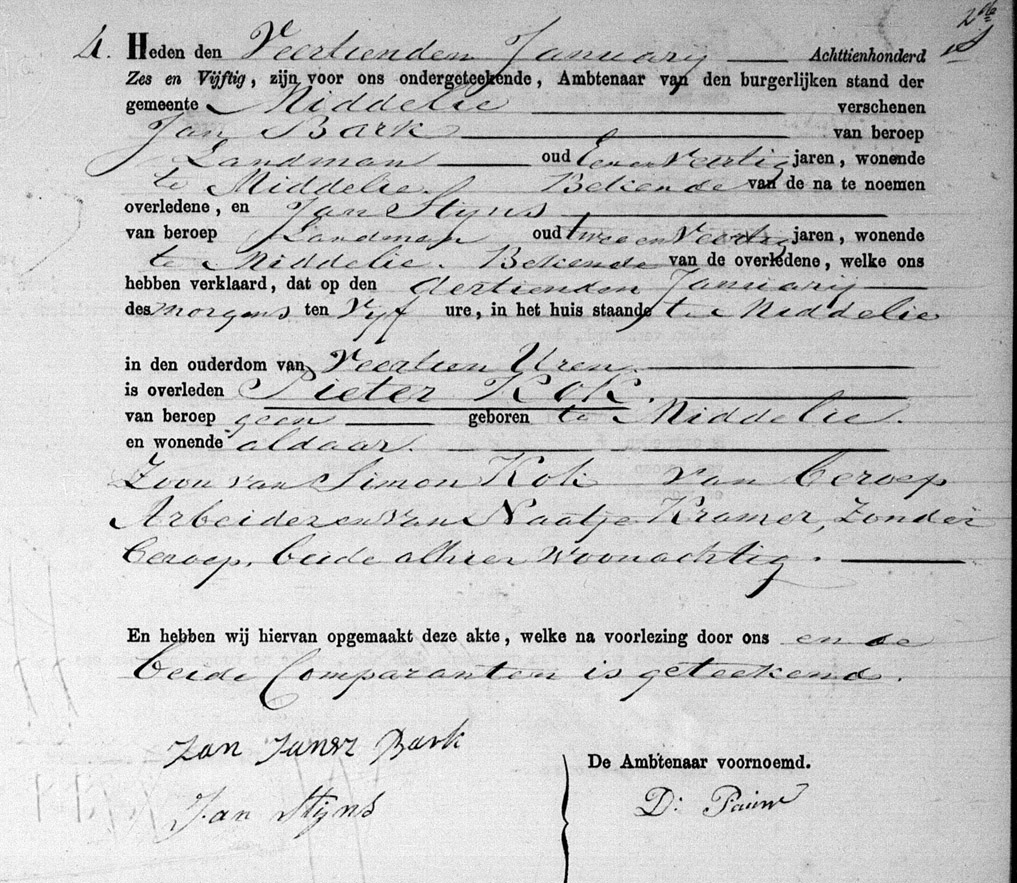 4. Heden den Veertienden Januarij Achttienhonderd
Zes en Vijftig, zijn voor ons ondergeteekende, Ambtenaar van den burgerlijken stand der
gemeente Middelie verschenen
Jan Bark van beroep
Landman oud Een en Veertig jaren, wonende
te Middelie. Bekende van de na te noemen
overledene, en Jan Stijns
van beroep Landman oud twee en Veertig jaren, wonende
te Middelie. Bekende van de overledene, welke ons
hebben verklaard, dat op den dertienden Januarij
des morgens ten Vijf ure, in het huis staande te Middelie
in den ouderdom van Veertien Uren
is overleden Pieter Kok.
van beroep geen geboren te Middelie.
en wonende aldaar.
Zoon van Simon Kok van beroep
Arbeider en van Naatje Kramer, Zonder
beroep, beide alhier woonachtig.
En hebben wij hiervan opgemaakt deze akte, welke na voorlezing door ons en de
beide Comparanten is geteekend.
Jan Jansz Bark
Jan Stijns
De Ambtenaar voornoemd.
D: Pauw